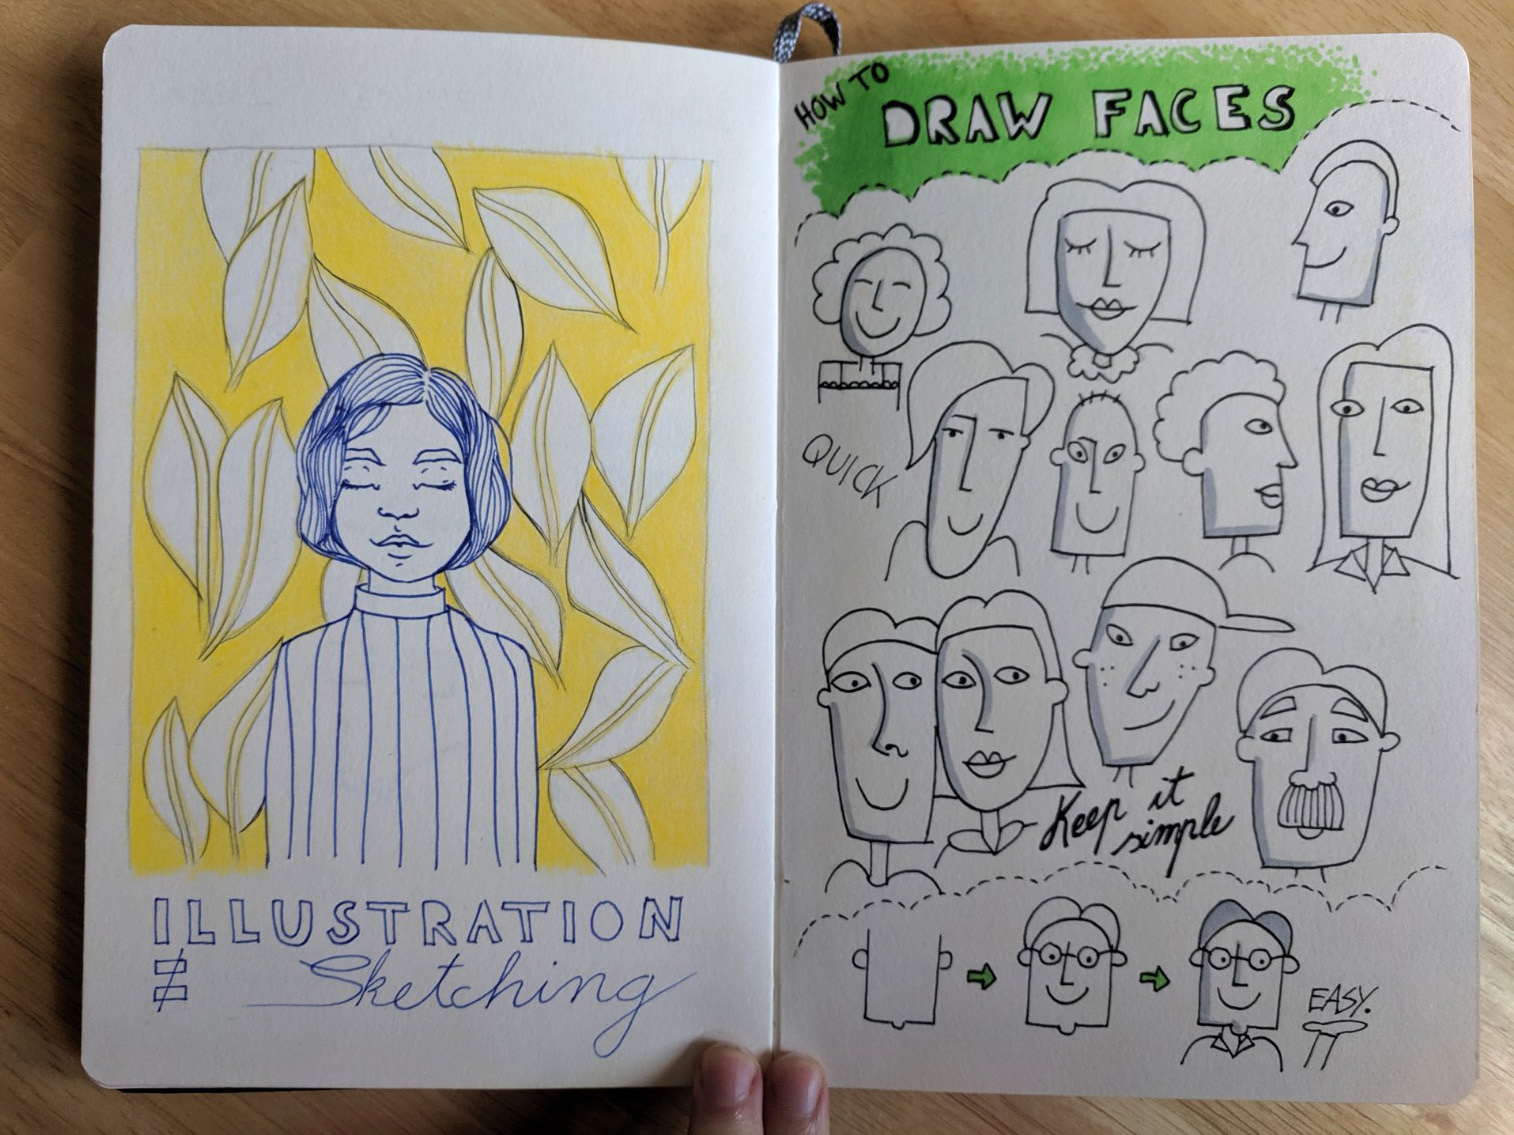 ILLUSTRATION
≠ Sketching
HOW TO
DRAW FACES
QUICK
Keep it
simple
EASY.